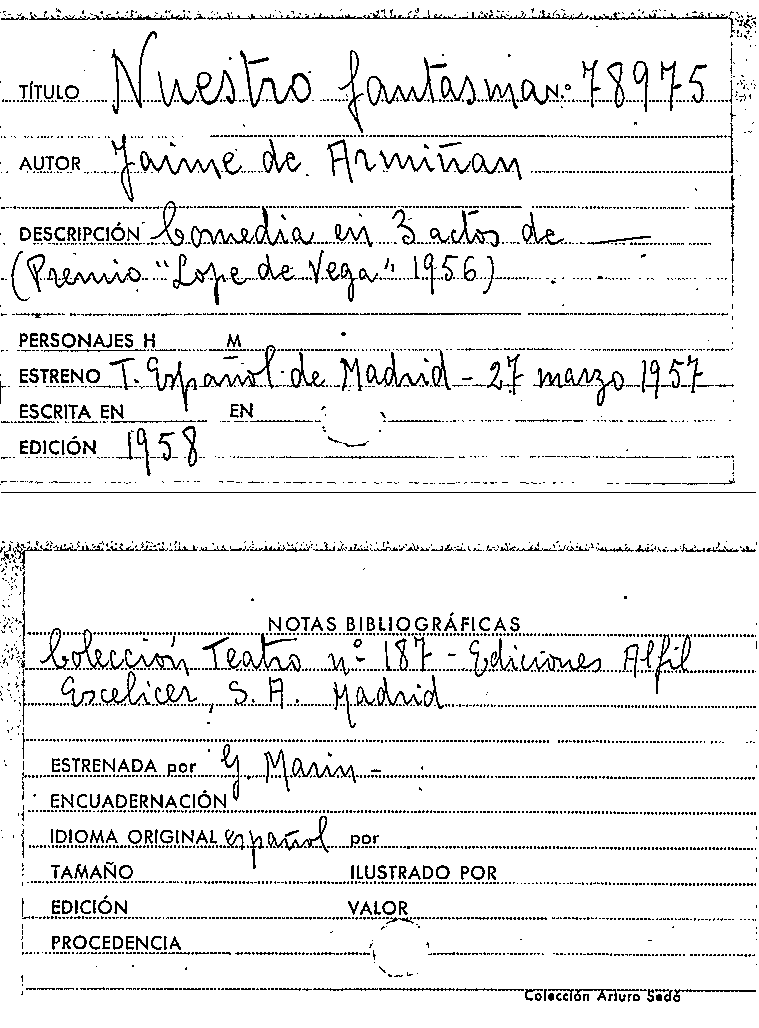 TÍTULO Nuestro fantasma N.º 78975
AUTOR Jaime de Armiñan
DESCRIPCIÓN Comedia en 3 actos de —
(Premio "Lope de Vega" 1956)
PERSONAJES H M
ESTRENO T. Español de Madrid - 27 marzo 1957
ESCRITA EN EN
EDICIÓN 1958
NOTAS BIBLIOGRÁFICAS
Colección Teatro nº 187 - Ediciones Alfil
Escelicer, S. A. Madrid
ESTRENADA por G. Marin -
ENCUADERNACIÓN
IDIOMA ORIGINAL español por
TAMAÑO ILUSTRADO POR
EDICIÓN VALOR
PROCEDENCIA
Colección Arturo Sedó